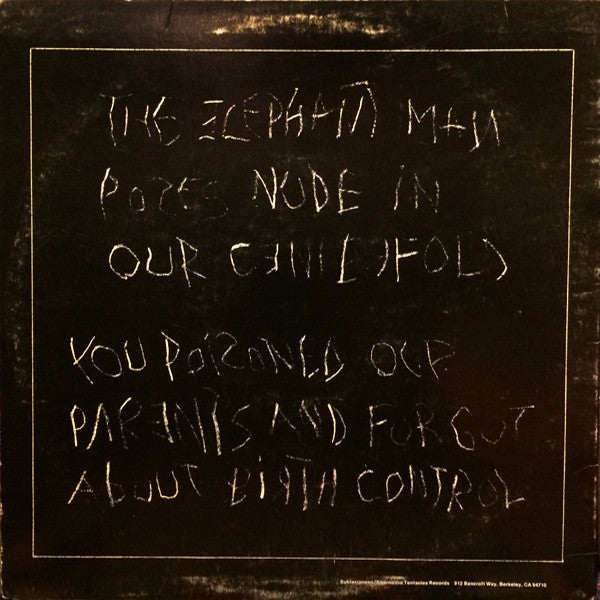 THE ELEPHANT MAN
POSES NUDE IN
OUR CENTERFOLD
YOU POISONED OUR
PARENTS AND FORGOT
ABOUT BIRTH CONTROL
Subterranean/Alternative Tentacles Records 912 Bancroft Way, Berkeley, CA 94710